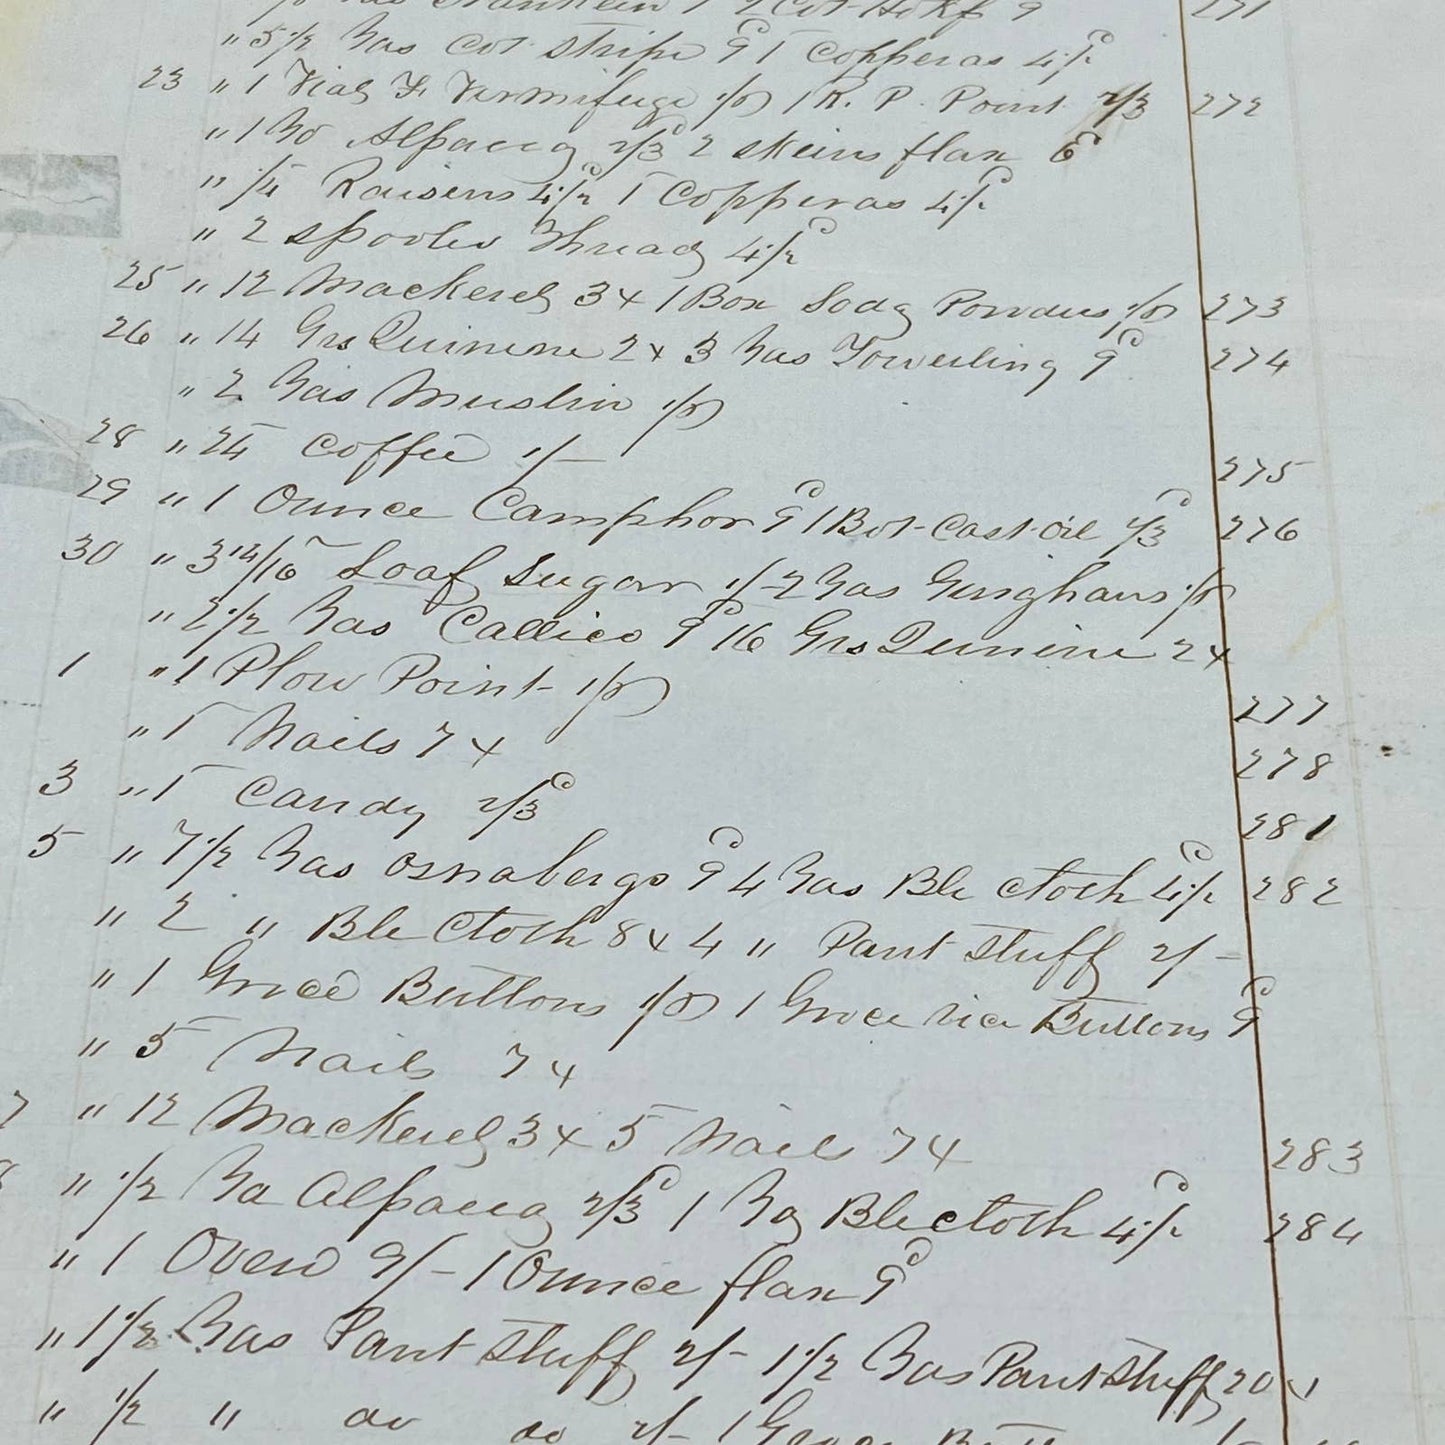 " 5 1/2 Yas Cot Stripe 9c 1 Copperas 4 1/2c
23 " 1 Vial F. Vermifuge 1/6 1 R. P. Point 2/3 272
" 1 Yd Alpacca 2/3c 2 Skeins flax 6c
" 14 Raisens 4 1/2c 1 Copperas 4 1/2c
" 2 Spooles Thread 4 1/2c
25 " 12 Mackerel 3x 1 Box Soda Powders 1/6 273
26 " 14 Grs Quinine 2x 3 Yas Toweling 9c 274
" 2 Yas Muslin 1/6
28 " 25 Coffee 1/- 275
29 " 1 Ounce Camphor 9c 1 Bot-Cast oil 2/3c 276
30 " 3 14/16 Loaf Sugar 1/- 2 Yas Ginghams 1/6
" 2 1/2 Yas Callico 9c 16 Grs Quinine 2x
1 " 1 Plow Point 1/6 277
" 5 Nails 7x 278
3 " 1 Candy 2/3c 281
5 " 7 1/2 Yas Osnabergs 9c 4 Yas Ble Cloth 4 1/2c 282
" 2 " Ble Cloth 8x 4 " Pant Stuff 2/-
" 1 Groce Buttons 1/6 1 Groce Buttons 9c
" 5 Nails 7x
7 " 12 Mackerel 3x 5 Nails 7x 283
8 " 1/2 Ya Alpacca 2/3c 1 Ya Ble Cloth 4 1/2c 284
" 1 Oven 9/- 1 Ounce flax 9c
" 1 1/2 Yas Pant Stuff 2/- 1 1/2 Yas Pant Stuff
" 1/2 " do do 2/- 1